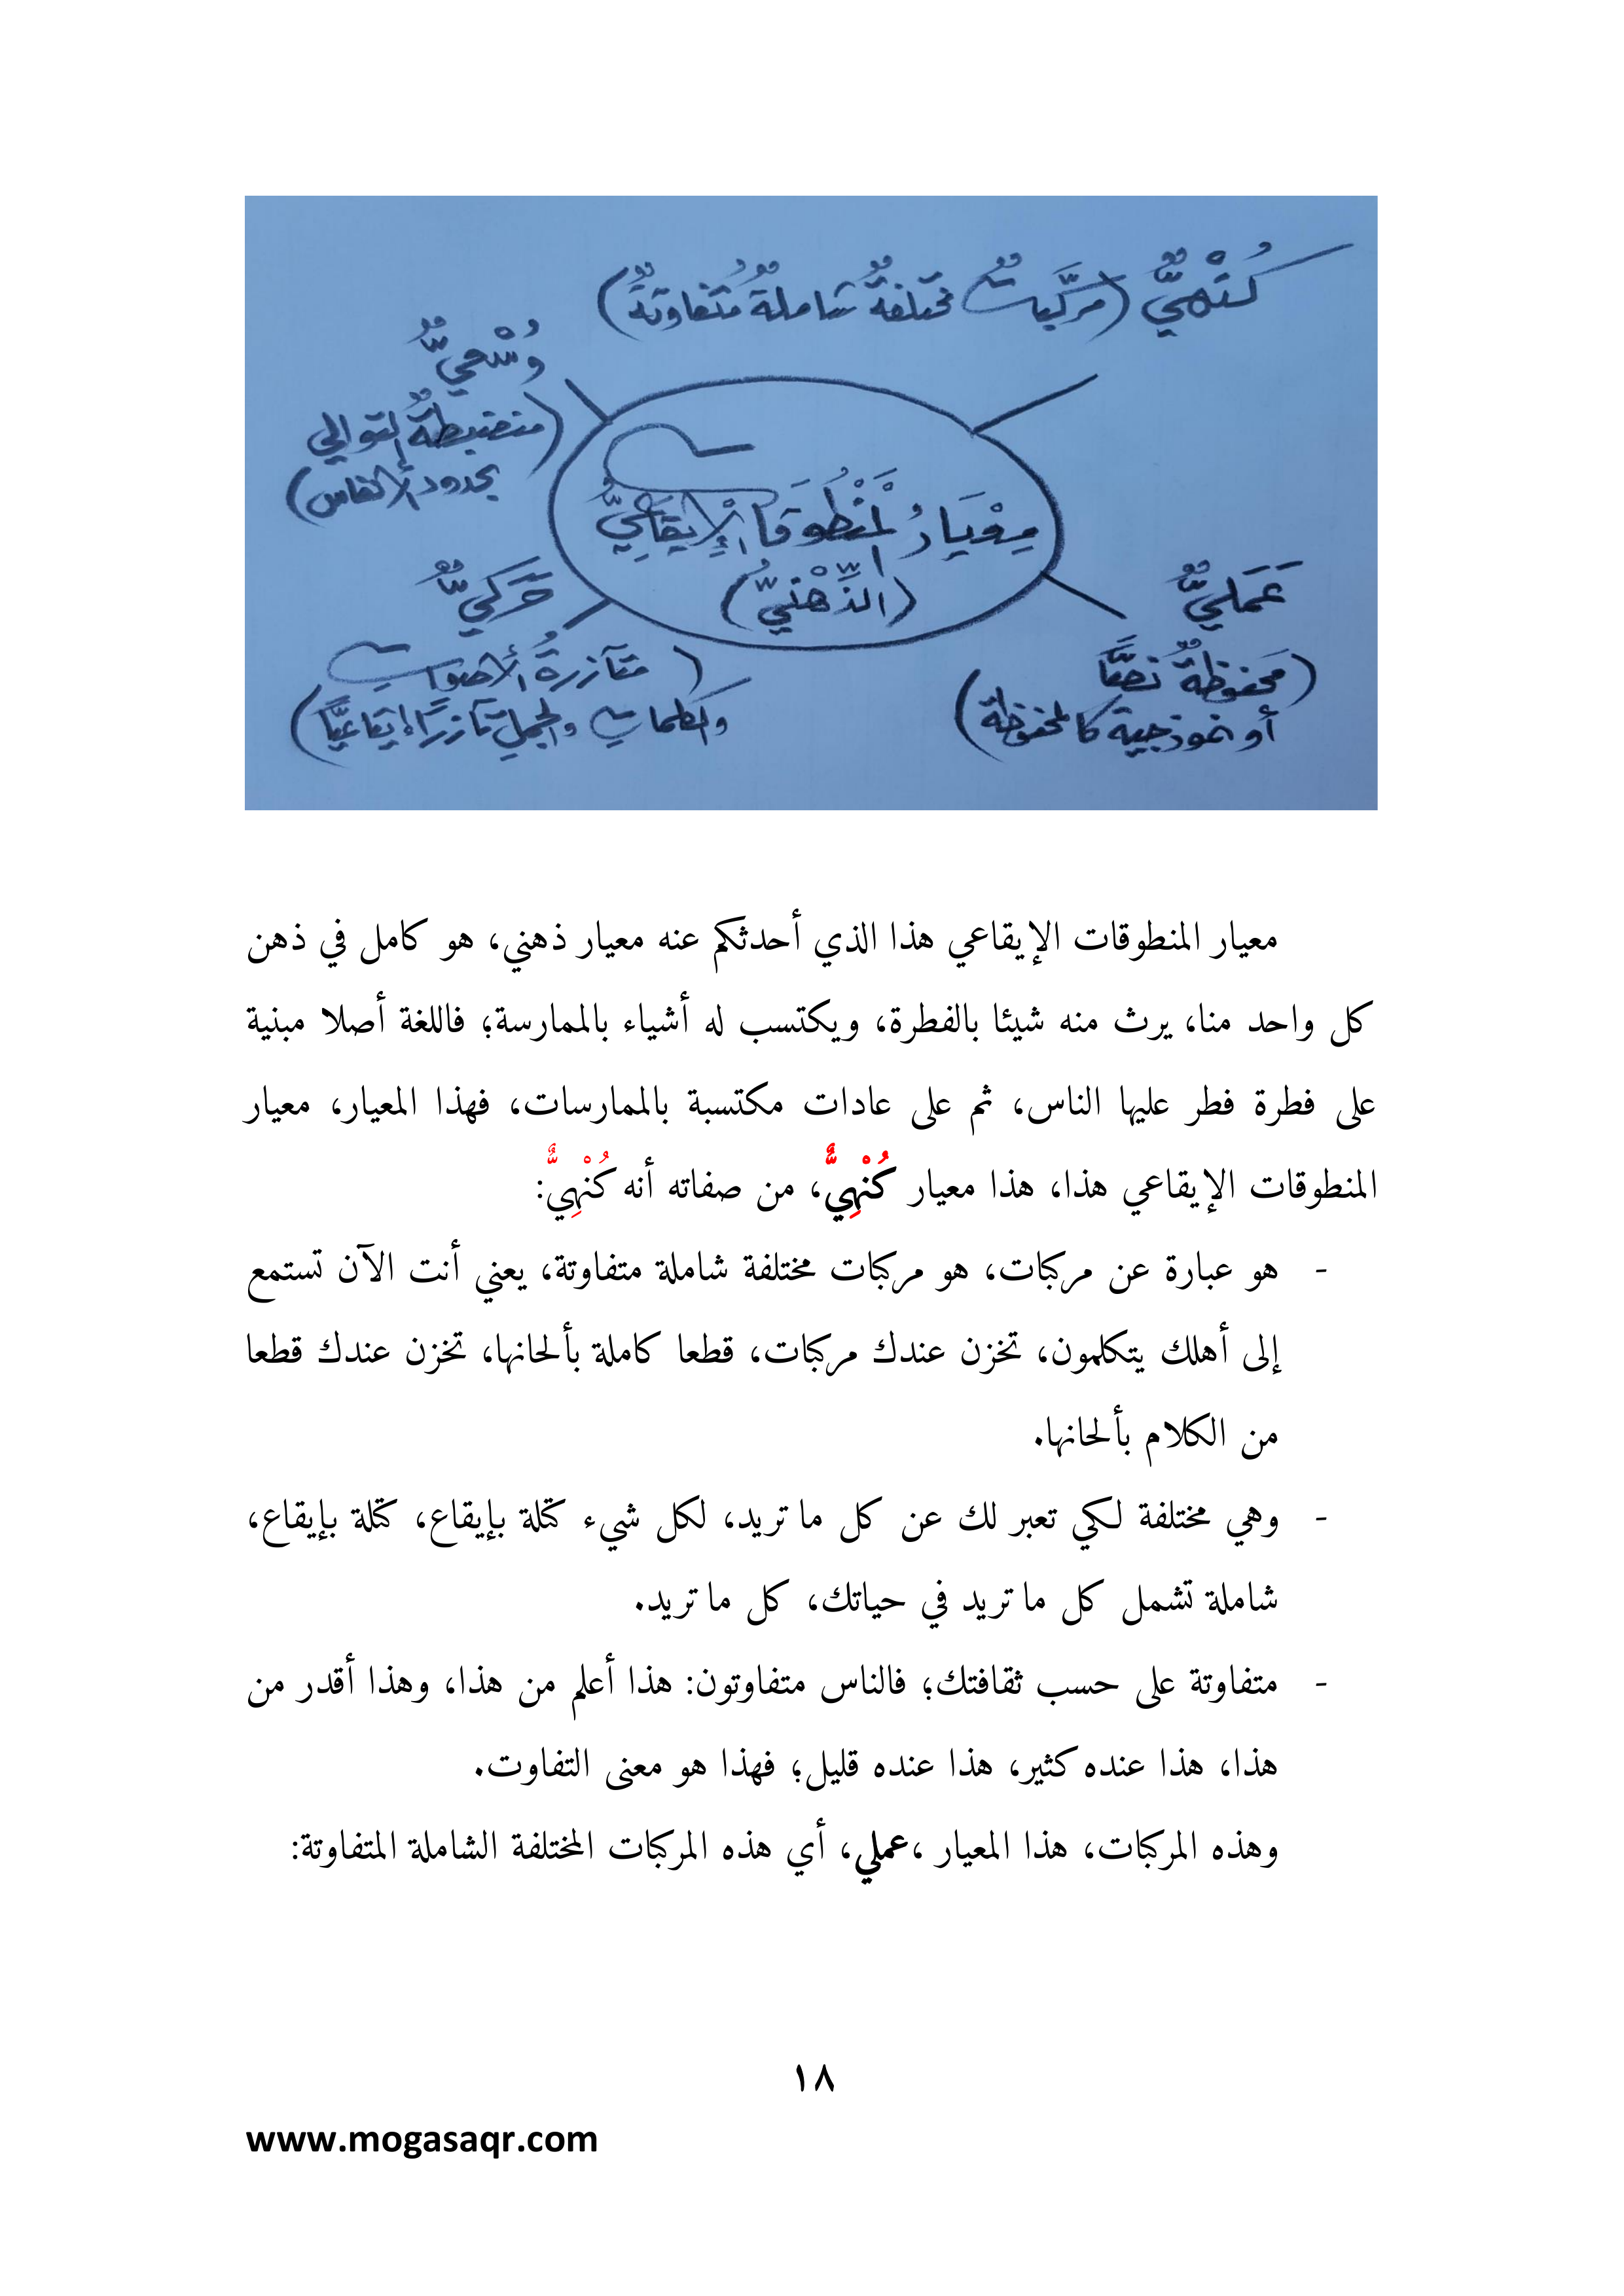 كُنْهِيٌّ (مركَّباتٌ مختلفةٌ شاملةٌ مُتفاوتةٌ)
وُسْعِيٌّ
(منضبطةُ التوالي
بحدود الأنفاس)
مِعْيَارُ الْمَنْطُوقَاتِ الْإِيقَاعِيُّ
(الذِّهْنِيُّ)
عَمَلِيٌّ
(محفوظةٌ نصًّا
أو نموذجية كالمحفوظة)
حَرَكِيٌّ
(متآزرةُ الأصوات
والكلمات والجمل تآزرًا إيقاعيًّا)
معيار المنطوقات الإيقاعي هذا الذي أحدثكم عنه معيار ذهني، هو كامل في ذهن
كل واحد منا، يرث منه شيئا بالفطرة، ويكتسب له أشياء بالممارسة؛ فاللغة أصلا مبنية
على فطرة فطر عليها الناس، ثم على عادات مكتسبة بالممارسات، فهذا المعيار، معيار
المنطوقات الإيقاعي هذا، هذا معيار كُنْهِيٌّ، من صفاته أنه كُنْهِيٌّ:
- هو عبارة عن مركبات، هو مركبات مختلفة شاملة متفاوتة، يعني أنت الآن تستمع
إلى أهلك يتكلمون، تخزن عندك مركبات، قطعا كاملة بألحانها، تخزن عندك قطعا
من الكلام بألحانها.
- وهي مختلفة لكي تعبر لك عن كل ما تريد، لكل شيء كتلة بإيقاع، كتلة بإيقاع،
شاملة تشمل كل ما تريد في حياتك، كل ما تريد.
- متفاوتة على حسب ثقافتك؛ فالناس متفاوتون: هذا أعلم من هذا، وهذا أقدر من
هذا، هذا عنده كثير، هذا عنده قليل؛ فهذا هو معنى التفاوت.
وهذه المركبات، هذا المعيار ،عملي، أي هذه المركبات المختلفة الشاملة المتفاوتة:
١٨
www.mogasaqr.com